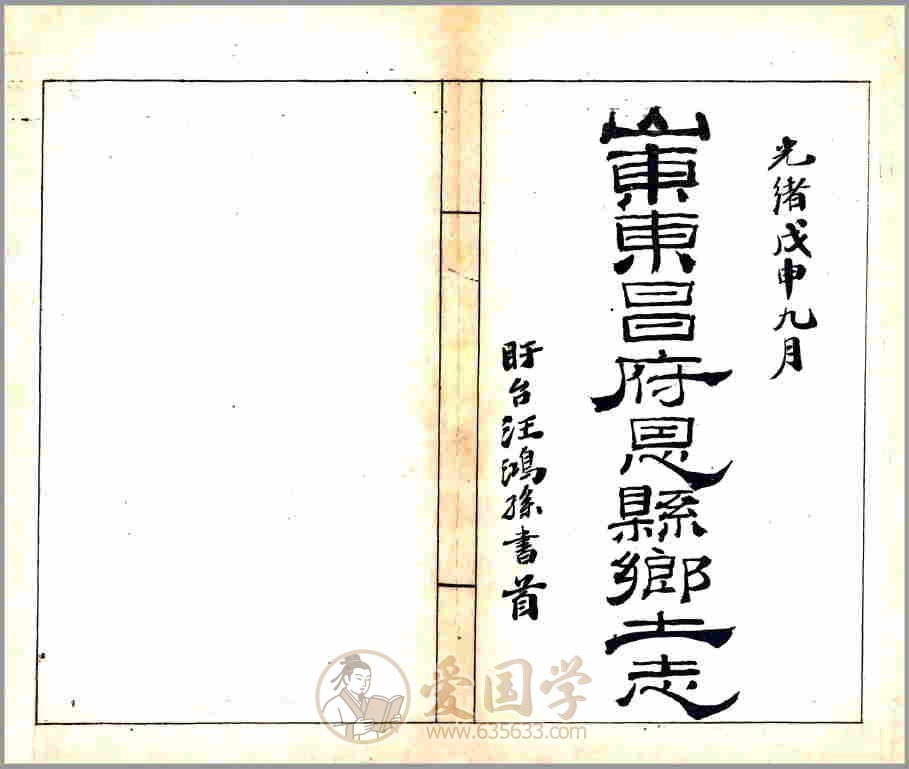 光緒戊申九月
山東東昌府恩縣鄉土志
盱台汪鴻孫書首
爱国学
www.635633.com